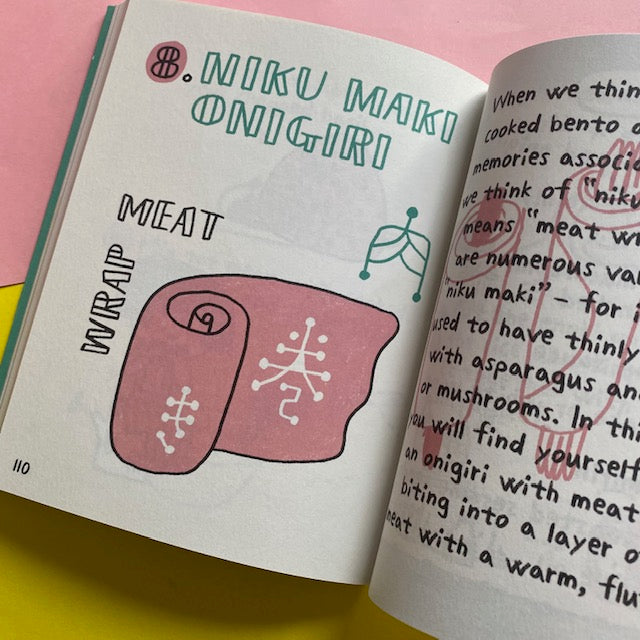 8. NIKU MAKI
ONIGIRI
MEAT
WRAP
肉
巻
き
110
When we thin
cooked bento
memories associa
we think of "niku
means "meat w
are numerous var
"niku maki" – for i
used to have thinly
with asparagus an
or mushrooms. In thi
you will find yourself
an onigiri with meat
biting into a layer o
meat with a warm, flu